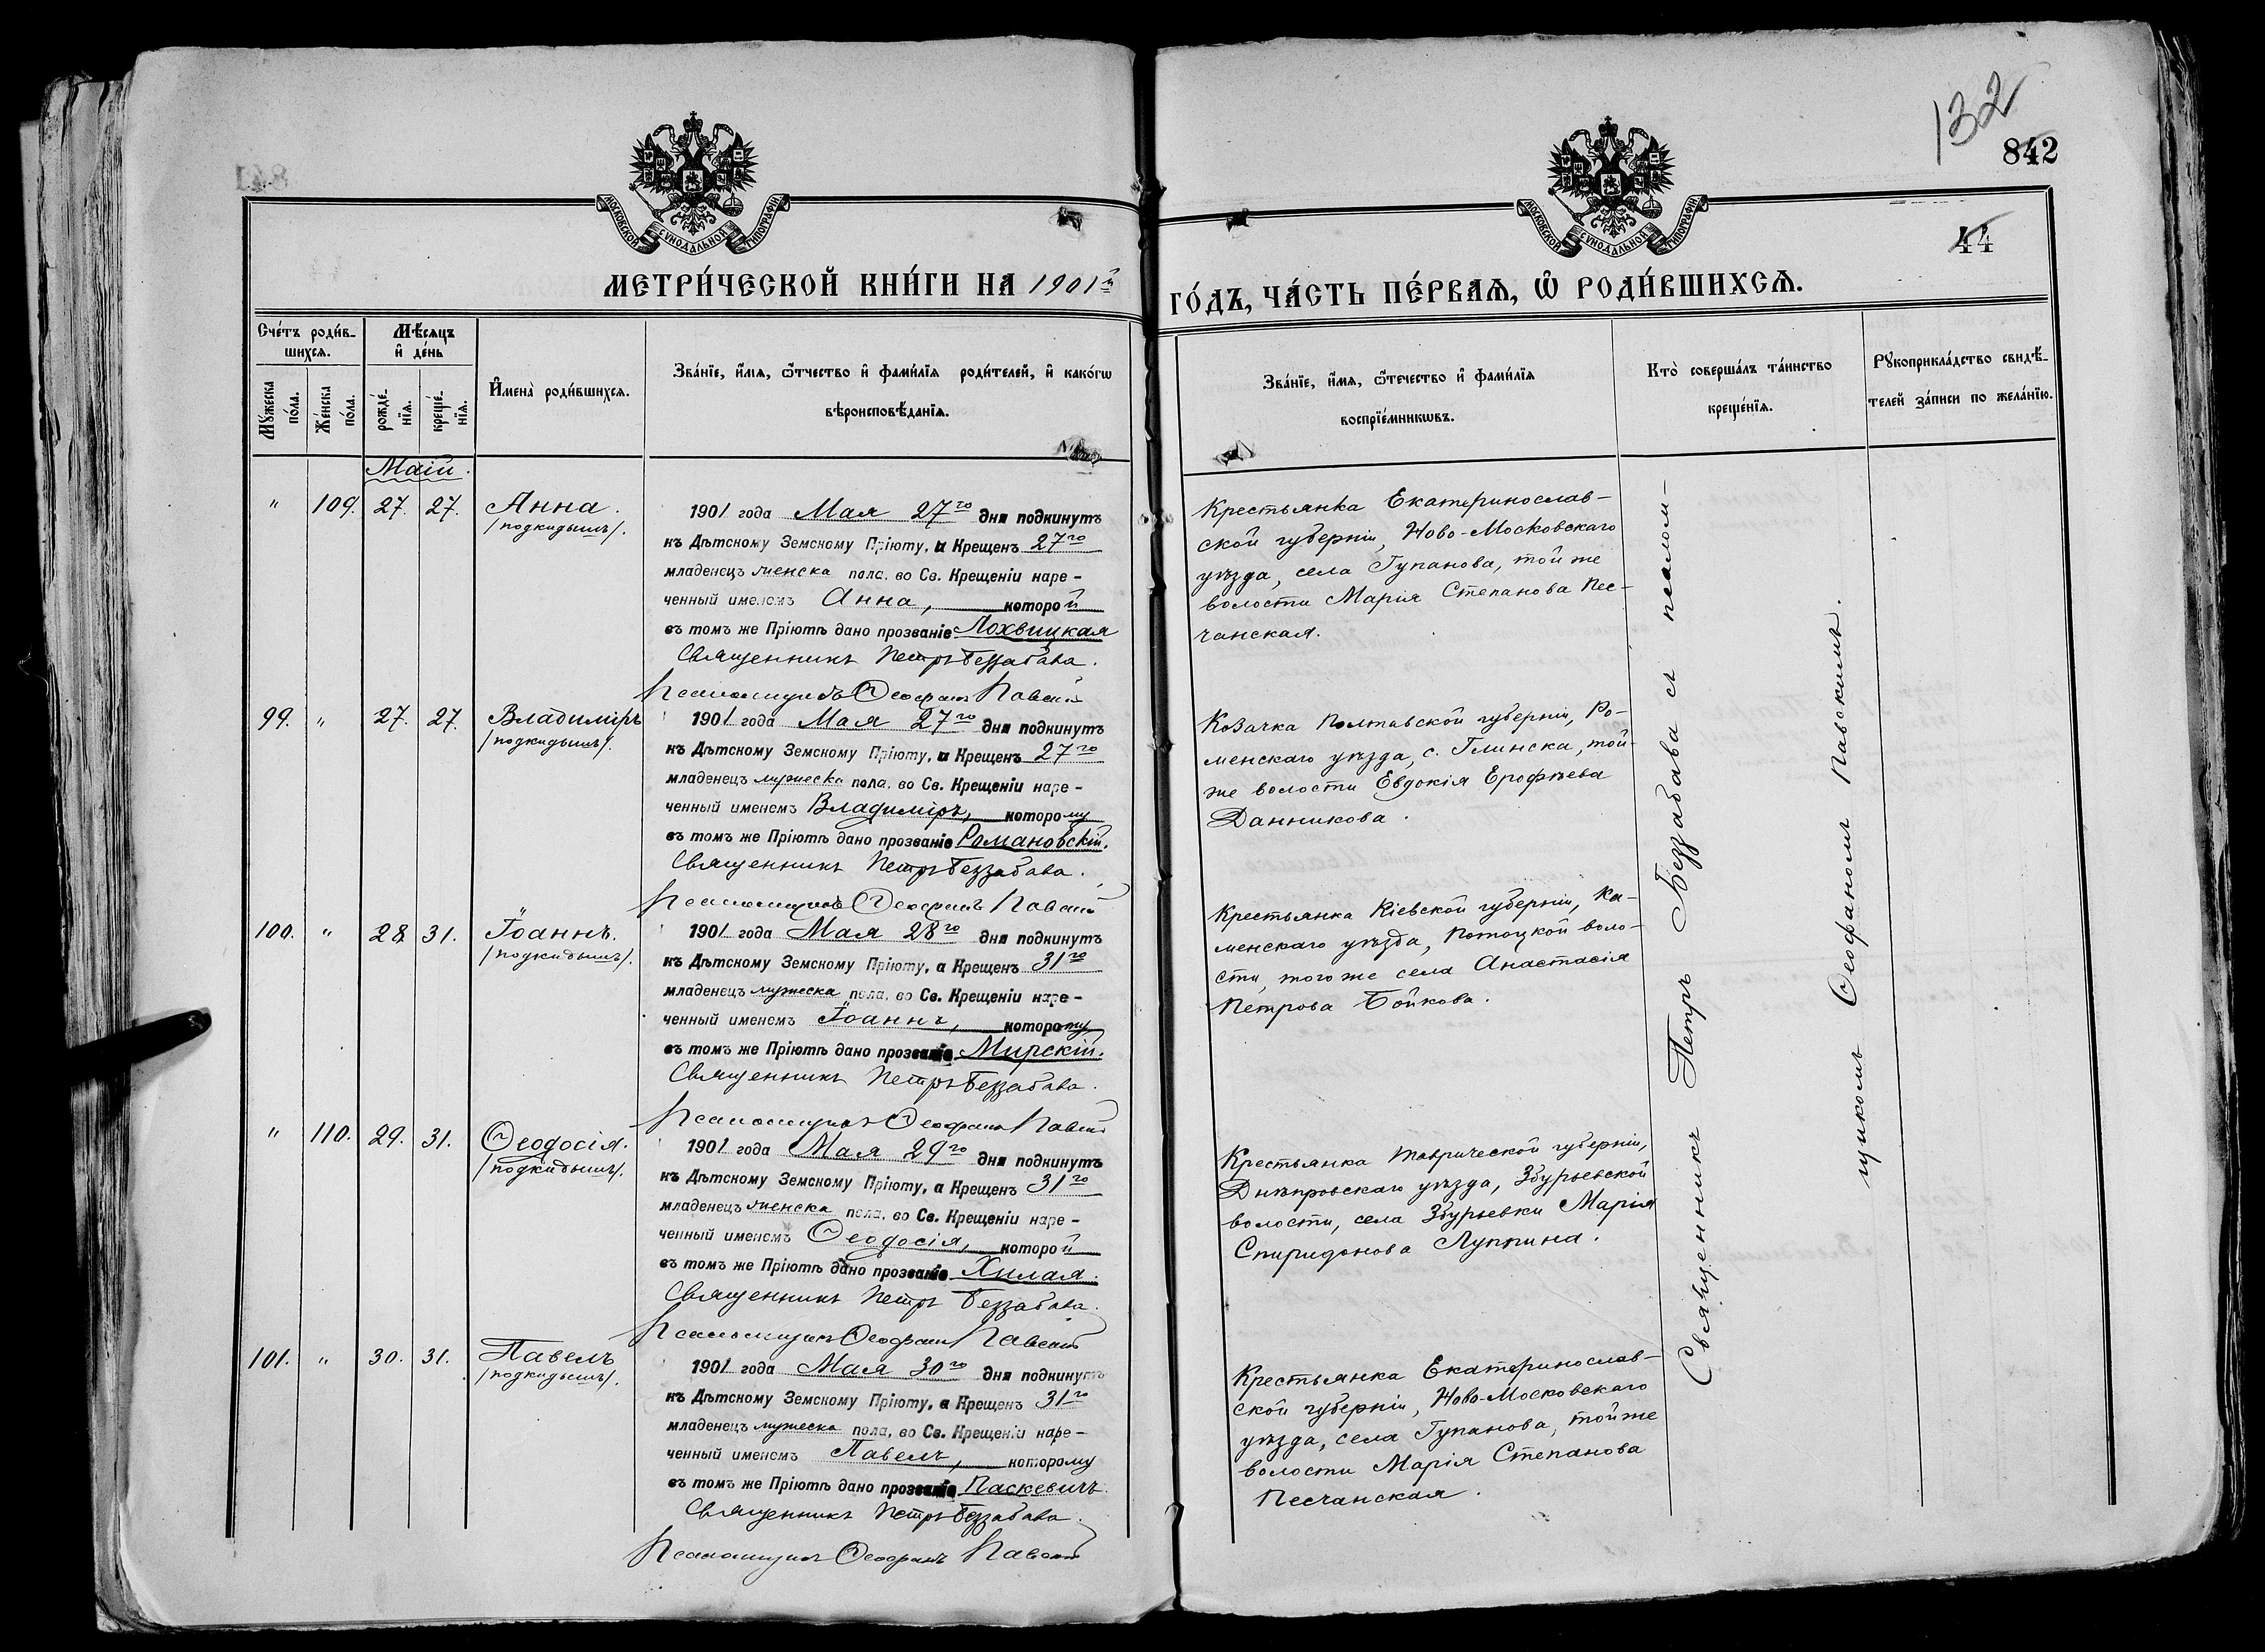 132
842
44
МОСКОВСКОЙ СѴНОДАЛЬНОЙ ТИПОГРАФІИ
МОСКОВСКОЙ СѴНОДАЛЬНОЙ ТИПОГРАФІИ
МЕТРИ́ЧЕСКОЙ КНИ́ГИ НА 1901й
ГО́ДЪ, ЧА́СТЬ ПЕ́РВАѦ, Ѽ РОДИ́ВШИХСѦ.
Сче́тъ роди́в-
шихсѧ.
Мꙋ́жеска по́ла.
Же́нска по́ла.
Мѣ́сѧцъ
и҆ де́нь
рожде́-
нїѧ.
креще́-
нїѧ.
И҆мена̀ роди́вшихсѧ.
Зва́нїе, и҆́мѧ, ѻ҆́тчество и҆ фами́лїѧ роди́телей, и҆ како́гѡ
вѣроисповѣ́данїѧ.
Зва́нїе, и҆́мѧ, ѻ҆́течество и҆ фами́лїѧ
воспрїе́мникѡвъ.
Кто̀ соверша́лъ та́инство
креще́нїѧ.
Рꙋкоприкла́дство свидѣ́-
телей за́писи по жела́нїю.
Маій.
" 109. 27. 27. Анна.
/подкидышъ/.
1901 года Мая 27го дня подкинутъ
къ Дѣтскому Земскому Пріюту, и Крещенъ 27го
младенецъ женска пола, во Св. Крещеніи наре-
ченный именемъ Анна, которой
въ томъ же Пріютѣ дано прозваніе Лохвицкая
Священникъ Петръ Беззабава.
Псаломщикъ Ѳеофанъ Павскій
Крестьянка Екатеринослав-
ской губерніи, Ново-Московскаго
уѣзда, села Гупанова, той же
волости Марія Степанова Пес-
чанская.
99. " 27. 27. Владиміръ
/подкидышъ/.
1901 года Мая 27го дня подкинутъ
къ Дѣтскому Земскому Пріюту, и Крещенъ 27го
младенецъ мужеска пола, во Св. Крещеніи наре-
ченный именемъ Владиміръ, которому
въ томъ же Пріютѣ дано прозваніе Романовскій.
Священникъ Петръ Беззабава.
Псаломщикъ Ѳеофанъ Павскій
Козачка Полтавской губерніи, Ро-
менскаго уѣзда, с. Глинска, той-
же волости Евдокія Ерофѣева
Данникова.
100. " 28 31. Іоаннъ.
/подкидышъ/.
1901 года Мая 28го дня подкинутъ
къ Дѣтскому Земскому Пріюту, а Крещенъ 31го
младенецъ мужеска пола, во Св. Крещеніи наре-
ченный именемъ Іоаннъ, которому
въ томъ же Пріютѣ дано прозваніе Мирскій.
Священникъ Петръ Беззабава.
Псаломщикъ Ѳеофанъ Павскій
Крестьянка Кіевской губерніи, Ка-
менскаго уѣзда, Потоцкой воло-
сти, того же села Анастасія
Петрова Бойкова.
" 110. 29. 31. Ѳеодосія.
/подкидышъ/.
1901 года Мая 29го дня подкинутъ
къ Дѣтскому Земскому Пріюту, а Крещенъ 31го
младенецъ женска пола, во Св. Крещеніи наре-
ченный именемъ Ѳеодосія, которой
въ томъ же Пріютѣ дано прозваніе Хилая.
Священникъ Петръ Беззабава.
Псаломщикъ Ѳеофанъ Павскій
Крестьянка Таврической губерніи,
Днѣпровскаго уѣзда, Збурьевской
волости, села Збурьевки Марія
Спиридонова Луппина.
101. " 30. 31. Павелъ
/подкидышъ/.
1901 года Мая 30го дня подкинутъ
къ Дѣтскому Земскому Пріюту, а Крещенъ 31го
младенецъ мужеска пола, во Св. Крещеніи наре-
ченный именемъ Павелъ, которому
въ томъ же Пріютѣ дано прозваніе Паскевичъ.
Священникъ Петръ Беззабава.
Псаломщикъ Ѳеофанъ Павскій
Крестьянка Екатеринослав-
ской губерніи, Ново-Московскаго
уѣзда, села Гупанова, той же
волости Марія Степанова
Песчанская.
Священникъ Петръ Беззабава съ псалом-
щикомъ Ѳеофаномъ Павскимъ.